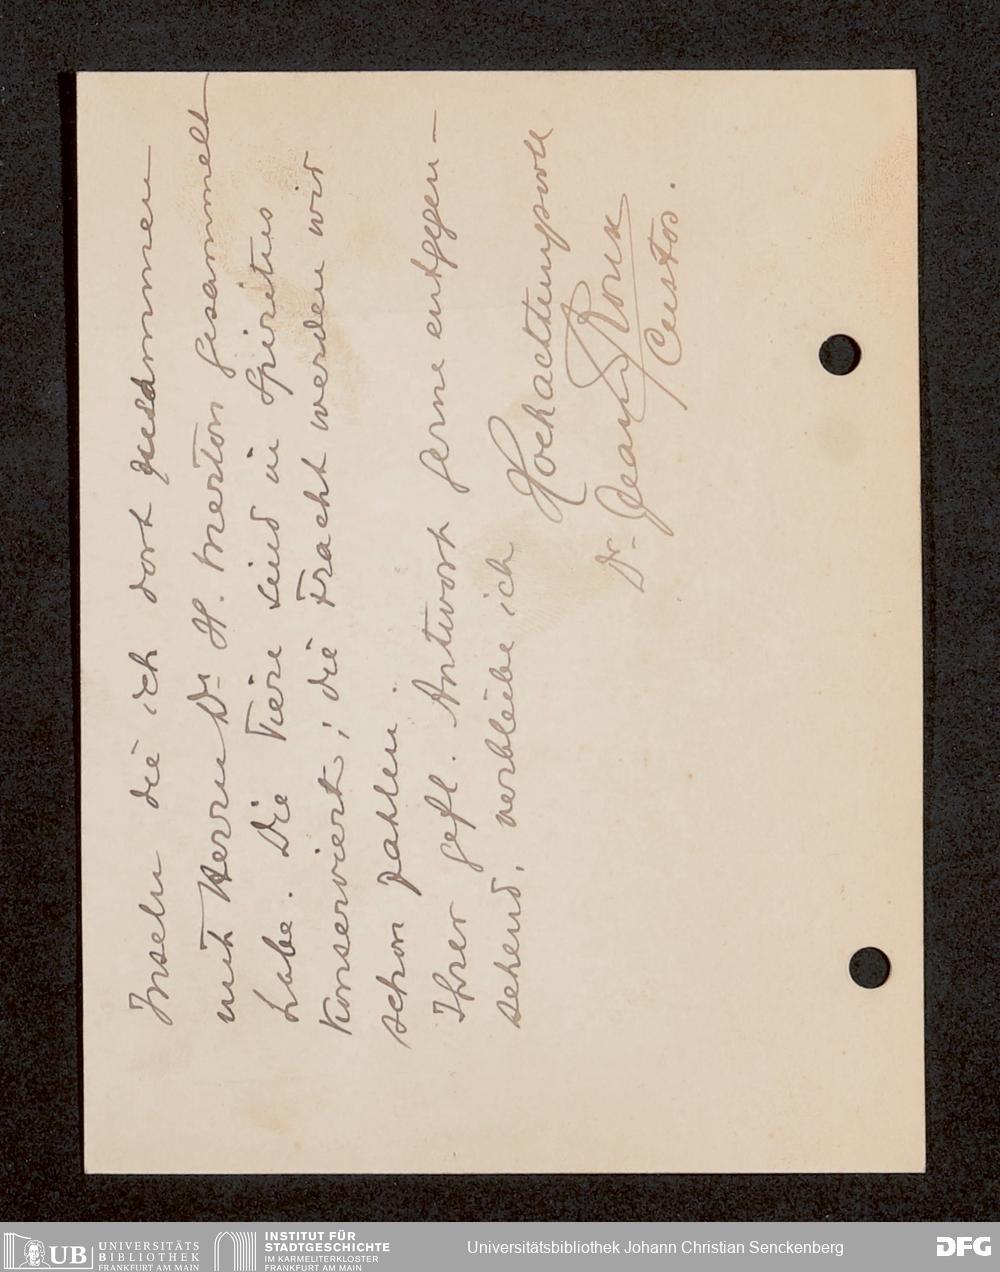 Inseln die ich dort zusammen
mit Herrn Dr. H. Merton gesammelt
habe. Die Tiere sind in Spiritus
konserviert; die Fracht werden wir
schon zahlen.
Ihrer gefl. Antwort gerne entgegen-
sehend, verbleibe ich
Hochachtungsvoll
Dr. Jean Roux
Custos.
UB UNIVERSITÄTS
BIBLIOTHEK
FRANKFURT AM MAIN
INSTITUT FÜR
STADTGESCHICHTE
IM KARMELITERKLOSTER
FRANKFURT AM MAIN
Universitätsbibliothek Johann Christian Senckenberg
DFG